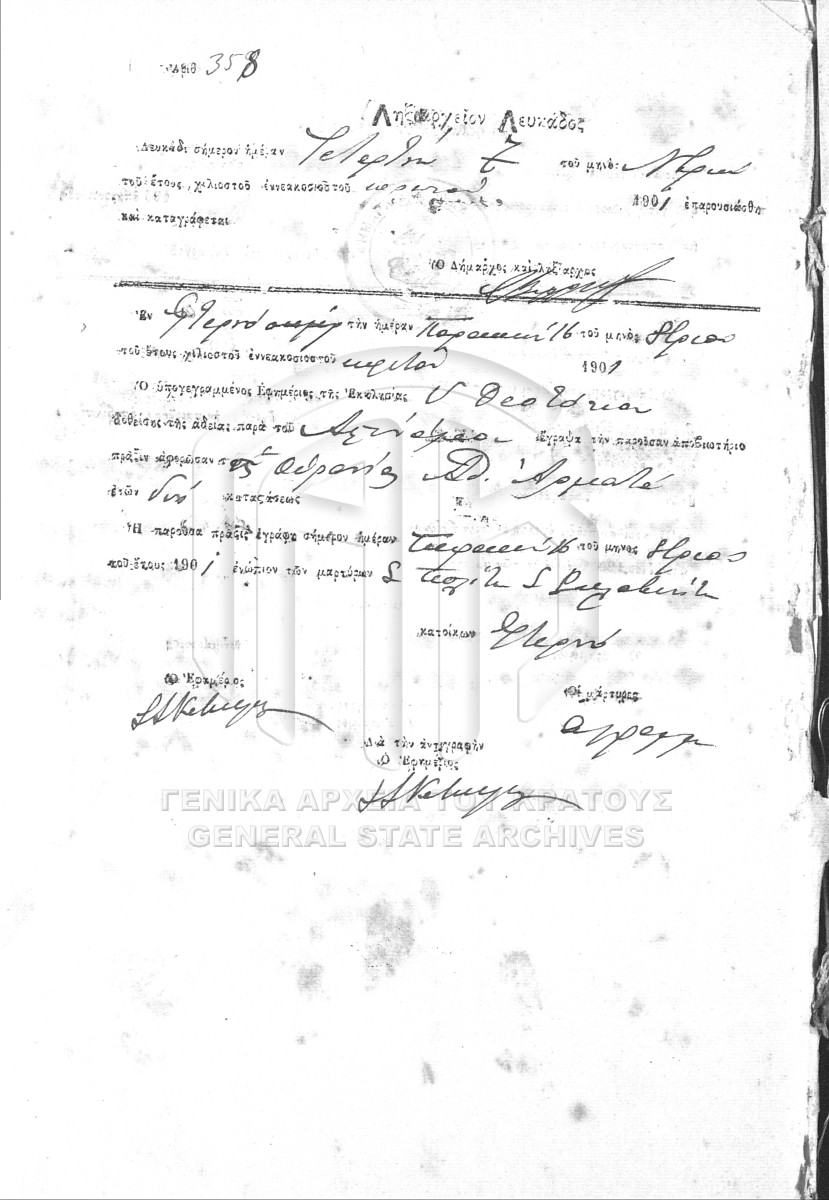 Ἀριθ 358
Ληξιαρχεῖον Λευκάδος
Λευκάδι σήμερον ἡμέραν Τετάρτην 7 τοῦ μηνὸς Νβρίου
τοῦ ἔτους χιλιοστοῦ ἐννεακοσιοστοῦ πρώτου 1901 ἐπαρουσιάσθη
καὶ καταγράφεται
Ὁ Δήμαρχος καὶ ληξίαρχος
Ἐν Φτερνὸ σήμερον τὴν ἡμέραν Παρασκευὴ 16 τοῦ μηνὸς
τοῦ ἔτους χιλιοστοῦ ἐννεακοσιοστοῦ πρώτου 1901
Ὁ ὑπογεγραμμένος Ἐφημέριος τῆς Ἐκκλησίας Υ Θεοτόκου
δοθείσης τῆς ἀδείας παρὰ τοῦ Ἀστυνόμου ἔγραψα τὴν παροῦσαν ἀποβιωτήριο
πρᾶξιν ἀφορῶσαν τῆς Οὐρανίας Ἀθ.
ἐτῶν δύο καταστάσεως
Ἡ παροῦσα πρᾶξις ἐγράφη σήμερον ἡμέραν Παρασκευὴ 16 τοῦ μηνὸς
τοῦ ἔτους 1901 ἐνώπιον τῶν μαρτύρων Σ Πολίτη Σ
κατοίκων Φτερνό
Ὁ Ἐφημέριος
Οἱ μάρτυρες
ἀγράμμ
Διὰ τὴν ἀντιγραφὴν
Ὁ Ἐφημέριος
ΓΕΝΙΚΑ ΑΡΧΕΙΑ ΤΟΥ ΚΡΑΤΟΥΣ
GENERAL STATE ARCHIVES